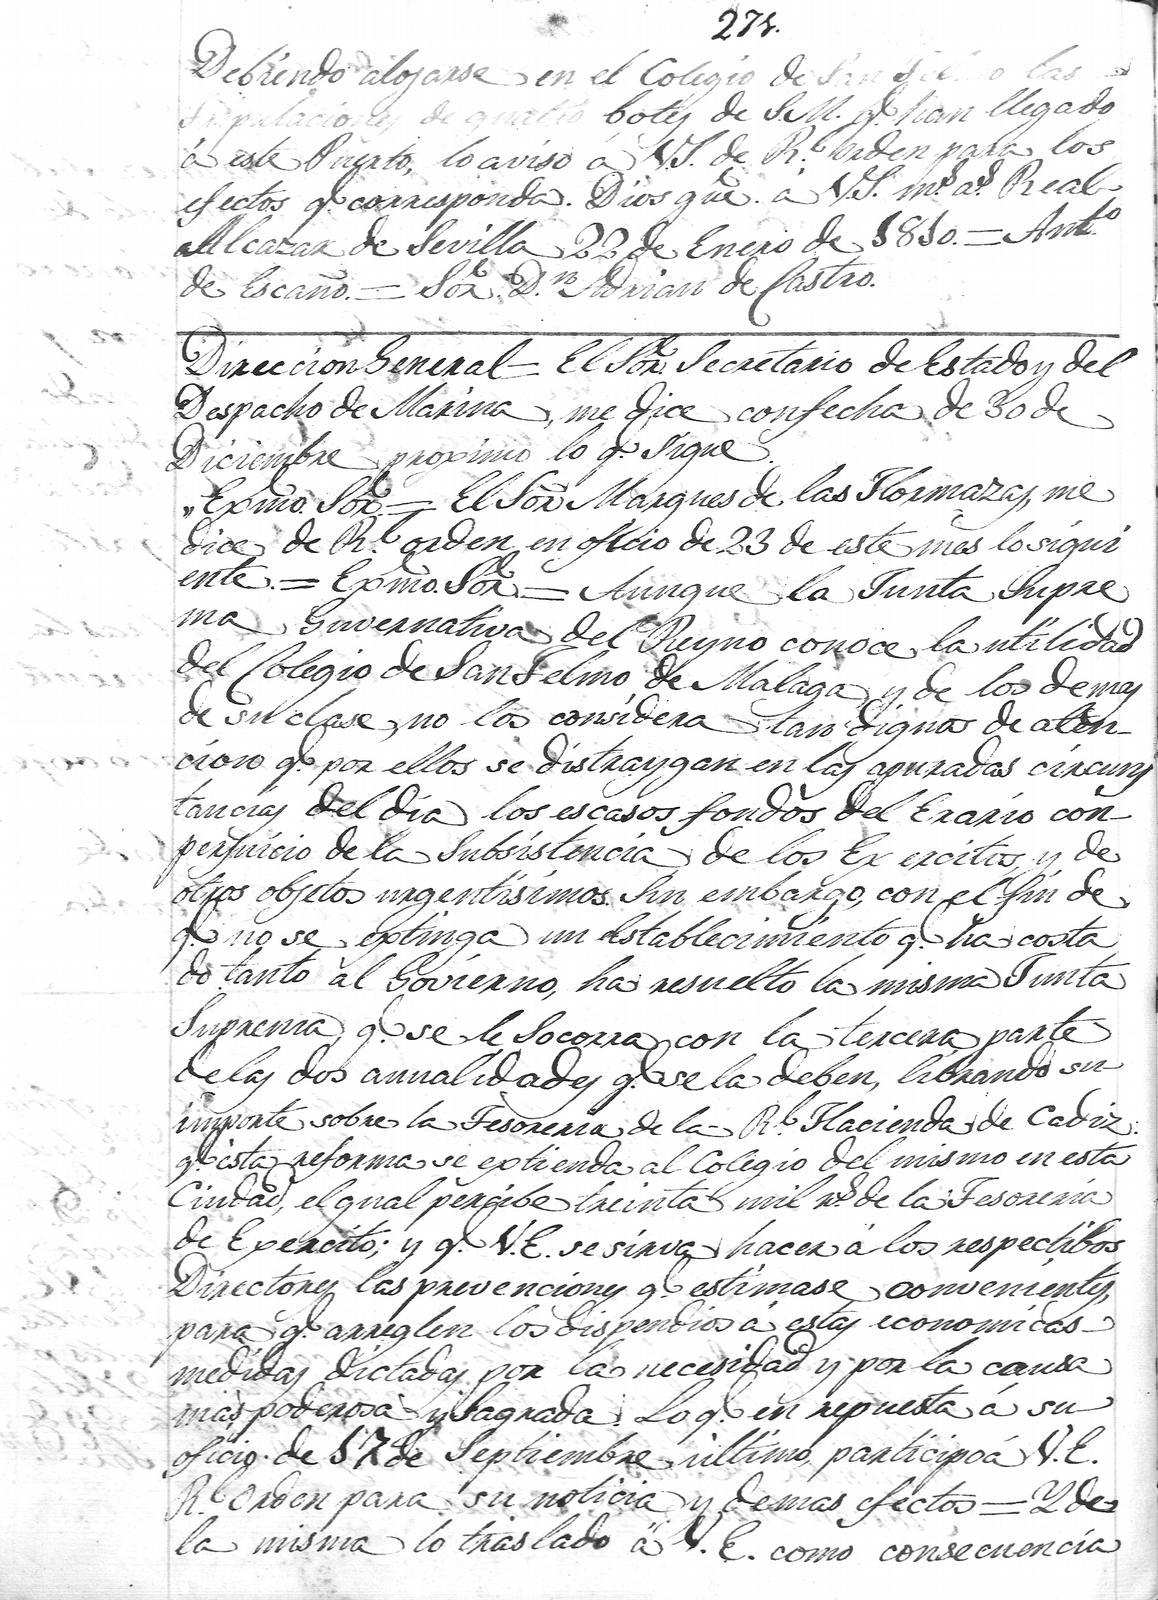 274.
Debiendo alojarse en el Colegio de San Telmo las
tripulaciones de quatro botes de S.M. q.e han llegado
á este Puerto, lo aviso á V.S. de R.l orden para los
efectos q.e corresponda. Dios gũe. á V.S. m.s a.s Real
Alcazar de Sevilla 22 de Enero de 1810. = Ant.o
de Escaño. = Sõr. D.n Adrian de Castro.
Direccion General = El Sõr. Secretario de Estado y del
Despacho de Marina, me dice con fecha de 30 de
Diciembre proximo lo q.e sigue.
„Exmõ. Sõr. = El Sõr. Marques de las Hormazas, me
dice de R.l orden en oficio de 23 de este mes lo sigui
ente. = Exmõ. Sõr. = Aunque la Junta Supre
ma Guvernativa del Reyno conoce la utilidad
del Colegio de San Telmo de Malaga y de los demas
de su clase, no los considera tan dignos de aten-
cion q.e por ellos se distraygan en las apuradas circuns
tancias del dia los escasos fondos del Erario con
perjuicio de la Subsistencia de los Exercitos, y de
otros objetos urgentisimos. Sin embargo, con el fin de
q.e no se extinga un establecimiento q.e ha costa
do tanto al Govierno, ha resuelto la misma Junta
Suprema, q.e se le Socorra con la tercera parte
de las dos annalidades q.e se la deben, librando su
importe sobre la Tesoreria de la R.l Hacienda de Cadiz:
q.e esta reforma se extienda al Colegio del mismo en esta
Ciudad, el qual percibe treinta mil r.s de la Tesoreria
de Exercito; y q.e V.E. se sirva hacer á los respectibos
Directores las prevenciones q.e estimase convenientes,
para q.e arreglen los dispendios á estas economicas
medidas dictadas por la necesidad y por la causa
mas poderosa y Sagrada. Lo q.e en repuesta á su
oficio de 17 de Septiembre ultimo, participo á V.E.
R.l Orden para su noticia y demas efectos = Y de
la misma lo traslado á V.E. como consecuencia